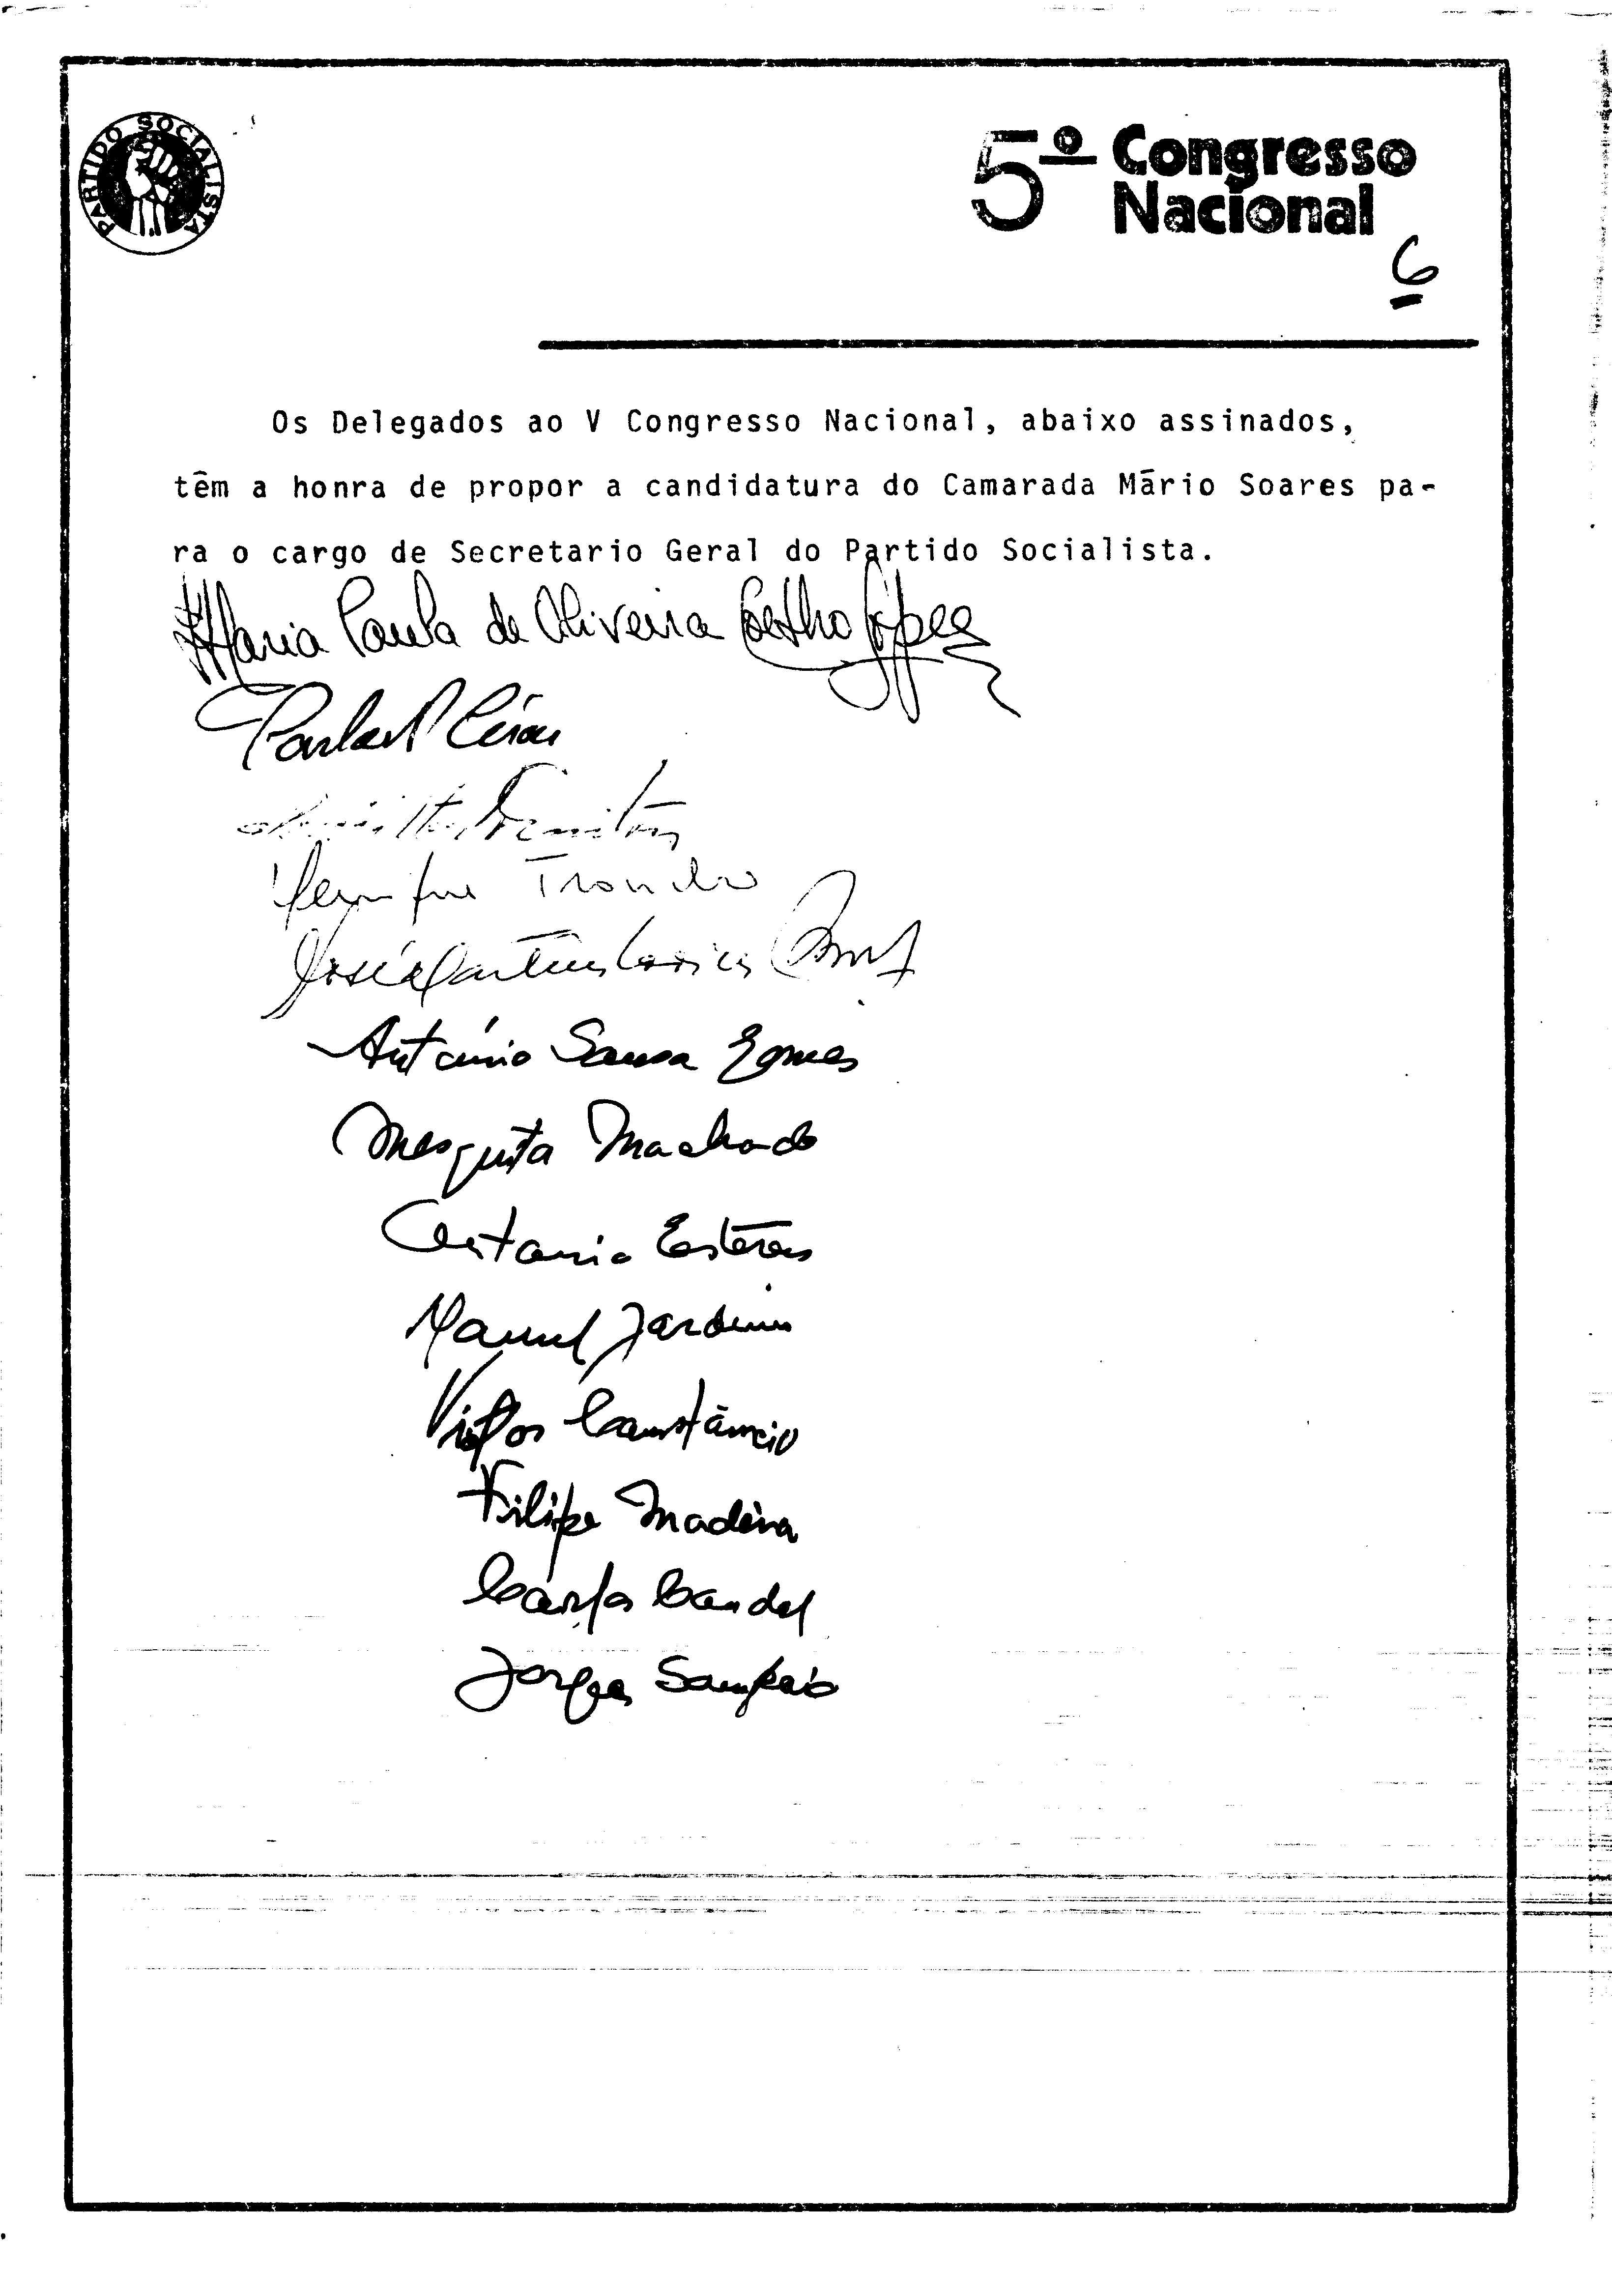 PARTIDO SOCIALISTA
5º Congresso
Nacional
6
Os Delegados ao V Congresso Nacional, abaixo assinados,
têm a honra de propor a candidatura do Camarada Mário Soares pa-
ra o cargo de Secretario Geral do Partido Socialista.
Maria Paula de Oliveira Coelho Lopes
José Martins
António Sousa Gomes
Mesquita Machado
Antonio Esteves
Manuel Jardim
Victor Constâncio
Filipe Madeira
Carlos Candal
Jorge Sampaio